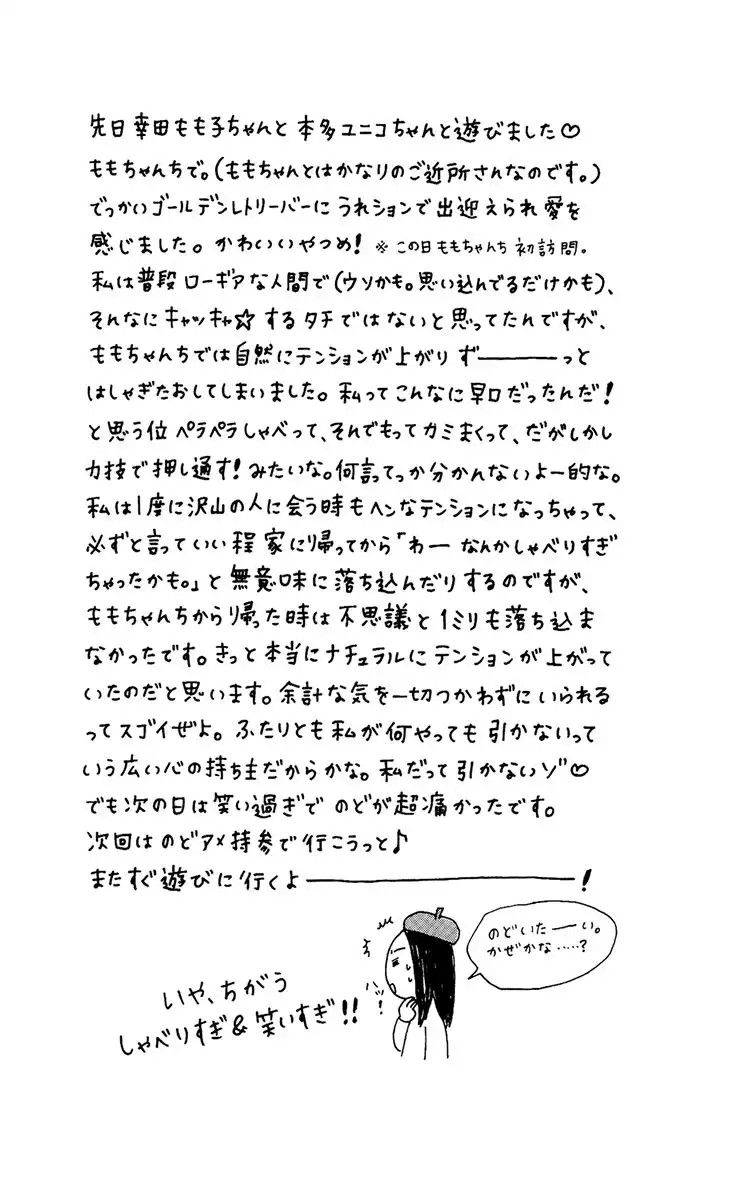 先日幸田もも子ちゃんと本多ユニコちゃんと遊びました♡
ももちゃんちで。(ももちゃんとはかなりのご近所さんなのです。)
でっかいゴールデンレトリーバーにうれションで出迎えられ愛を
感じました。かわいいやつめ! ※この日ももちゃんち初訪問。
私は普段ローギアな人間で(ウソかも。思い込んでるだけかも)、
そんなにキャッキャ☆するタチではないと思ってたんですが、
ももちゃんちでは自然にテンションが上がりず――――っと
はしゃぎたおしてしまいました。私ってこんなに早口だったんだ!
と思う位ペラペラしゃべって、それでもってカミまくって、だがしかし
力技で押し通す!みたいな。何言ってっか分かんないよー的な。
私は1度に沢山の人に会う時もヘンなテンションになっちゃって、
必ずと言っていい程家に帰ってから「わー なんかしゃべりすぎ
ちゃったかも。」と無意味に落ち込んだりするのですが、
ももちゃんちから帰った時は不思議と1ミリも落ち込ま
なかったです。きっと本当にナチュラルにテンションが上がって
いたのだと思います。余計な気を一切つかわずにいられる
ってスゴイぜよ。ふたりとも私が何やっても引かないって
いう広い心の持ち主だからかな。私だって引かないゾ♡
でも次の日は笑い過ぎでのどが超痛かったです。
次回はのどアメ持参で行こうっと♪
またすぐ遊びに行くよ――――――――――!
のどいたーーい。
かぜかな……?
ハッ!
いや、ちがう
しゃべりすぎ&笑いすぎ!!